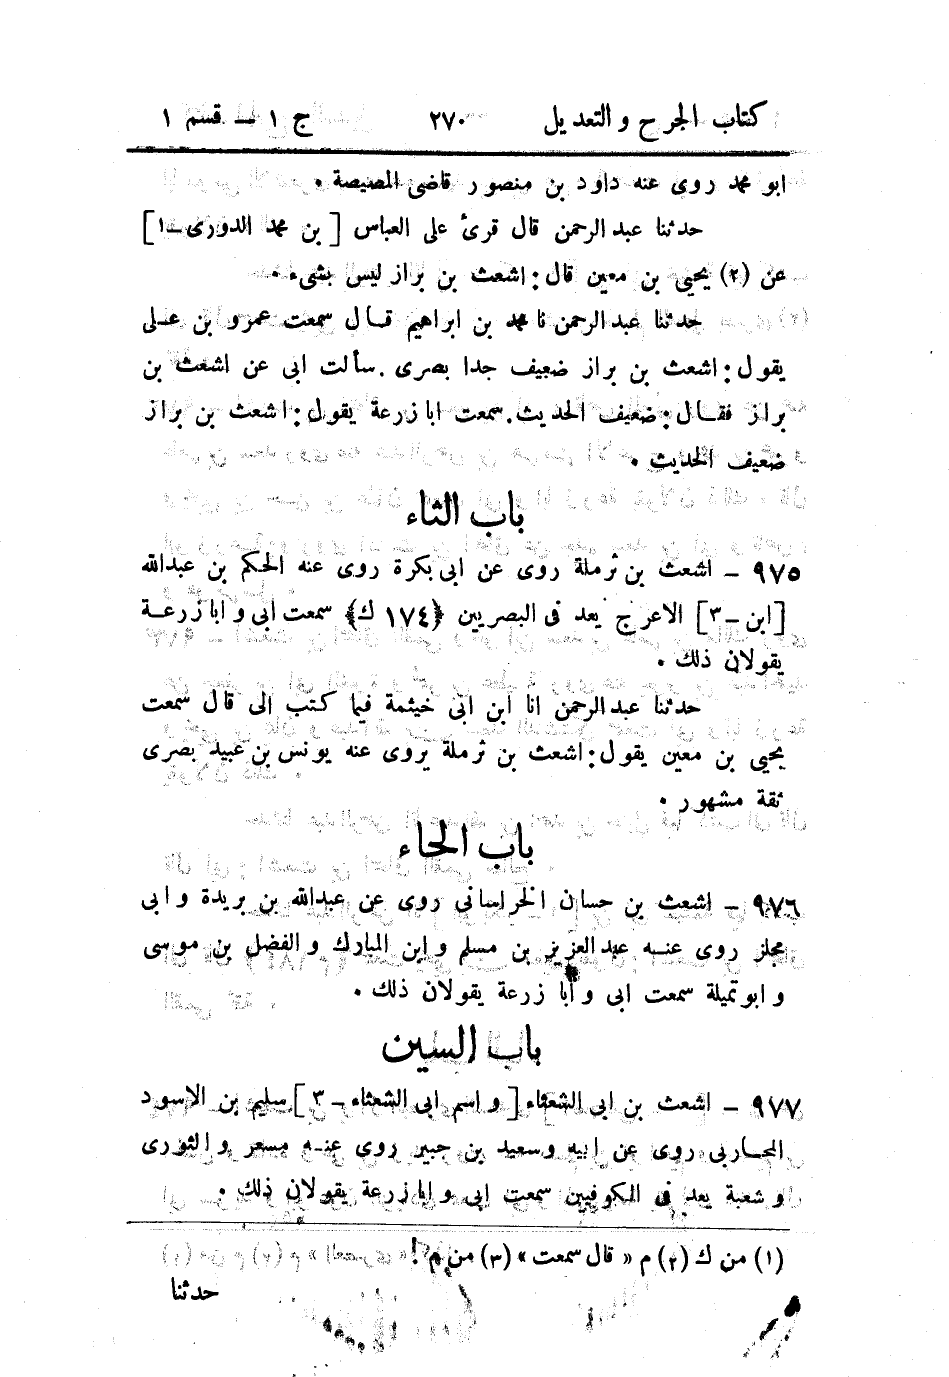 كتاب الجرح والتعديل ٢٧٠ ج ١ - قسم ١
ابو محمد روى عنه داود بن منصور قاضى المصيصة .
حدثنا عبد الرحمن قال قرئ على العباس [ بن محمد الدورى - ١ ]
عن (٢) يحيى بن معين قال : اشعث بن براز ليس بشىء .
حدثنا عبد الرحمن نا محمد بن ابراهيم قال سمعت عمرو بن على
يقول : اشعث بن براز ضعيف جدا بصرى . سألت ابى عن اشعث بن
براز فقال : ضعيف الحديث . سمعت ابا زرعة يقول : اشعث بن براز
ضعيف الحديث .
باب الثاء
٩٧٥ - اشعث بن ثرملة روى عن ابى بكرة روى عنه الحكم بن عبدالله
[ ابن - ٣ ] الاعرج يعد فى البصريين ﴿ ١٧٤ ك ﴾ سمعت ابى و ابا زرعة
يقولان ذلك .
حدثنا عبد الرحمن انا ابن ابى خيثمة فيما كتب الى قال سمعت
يحيى بن معين يقول : اشعث بن ثرملة يروى عنه يونس بن عبيد بصرى
ثقة مشهور .
باب الحاء
٩٧٦ - اشعث بن حسان الخراسانى روى عن عبدالله بن بريدة و ابى
مجلز روى عنه عبد العزيز بن مسلم و ابن المبارك و الفضل بن موسى
و ابو تميلة سمعت ابى و أبا زرعة يقولان ذلك .
باب السين
٩٧٧ - اشعث بن ابى الشعثاء [ و اسم ابى الشعثاء - ٣ ] سليم بن الاسود
المحاربى روى عن ابيه وسعيد بن جبير روى عنه مسعر و الثورى
و شعبة يعد فى الكوفيين سمعت ابى و ابا زرعة يقولان ذلك .
(١) من ك (٢) م « قال سمعت » (٣) من م !
حدثنا